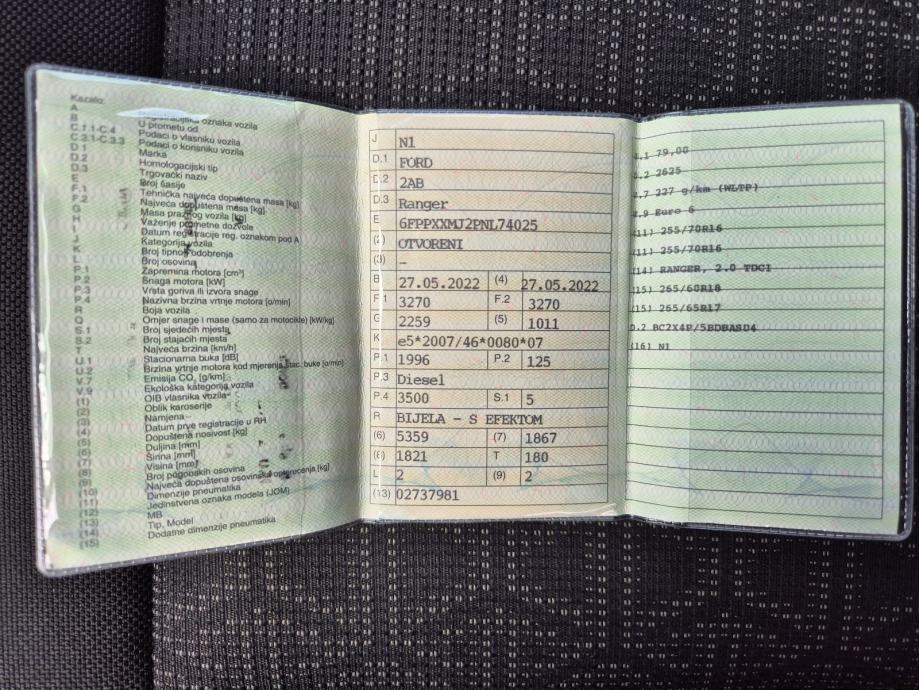 Kazalo:
A
B
C.1.1-C.4
C.3.1-C.3.3
D.1
D.2
D.3
E
F.1
F.2
G
H
I
J
K
L
P.1
P.2
P.3
P.4
R
Q
S.1
S.2
T
U.1
U.2
V.7
V.9
(1)
(2)
(3)
(4)
(5)
(6)
(7)
(8)
(9)
(10)
(11)
(12)
(13)
(14)
(15)
oznaka vozila
U prometu od
Podaci o vlasniku vozila
Podaci o korisniku vozila
Marka
Homologacijski tip
Trgovački naziv
Broj šasije
Tehnička najveća dopuštena masa [kg]
Najveća dopuštena masa [kg]
Masa praznog vozila [kg]
Važenje prometne dozvole
Datum registracije reg. oznakom pod A
Kategorija vozila
Broj tipnog odobrenja
Broj osovina
Zapremina motora [cm³]
Snaga motora [kW]
Vrsta goriva ili izvora snage
Nazivna brzina vrtnje motora [o/min]
Boja vozila
Omjer snage i mase (samo za motocikle) [kW/kg]
Broj sjedećih mjesta
Broj stajaćih mjesta
Najveća brzina [km/h]
Stacionarna buka [dB]
Brzina vrtnje motora kod mjerenja stac. buke [o/min]
Emisija CO₂ [g/km]
Ekološka kategorija vozila
OIB vlasnika vozila
Oblik karoserije
Namjena
Datum prve registracije u RH
Dopuštena nosivost [kg]
Duljina [mm]
Širina [mm]
Visina [mm]
Broj pogonskih osovina
Najveća dopuštena osovinska opterećenja [kg]
Dimenzije pneumatika
Jedinstvena oznaka modela (JOM)
MB
Tip, Model
Dodatne dimenzije pneumatika
J N1
D.1 FORD
D.2 2AB
D.3 Ranger
E 6FPPXXMJ2PNL74025
(2) OTVORENI
(3) –
B 27.05.2022 (4) 27.05.2022
F.1 3270 F.2 3270
G 2259 (5) 1011
K e5*2007/46*0080*07
P.1 1996 P.2 125
P.3 Diesel
P.4 3500 S.1 5
R BIJELA - S EFEKTOM
(6) 5359 (7) 1867
(8) 1821 T 180
L 2 (9) 2
(13) 02737981
.1 79,00
.2 2625
.7 237 g/km (WLTP)
.9 Euro 6
(11) 255/70R16
(11) 255/70R16
(14) RANGER, 2.0 TDCI
(15) 265/60R18
(15) 265/65R17
D.2 BC2X4P/5BDBASD4
(16) N1